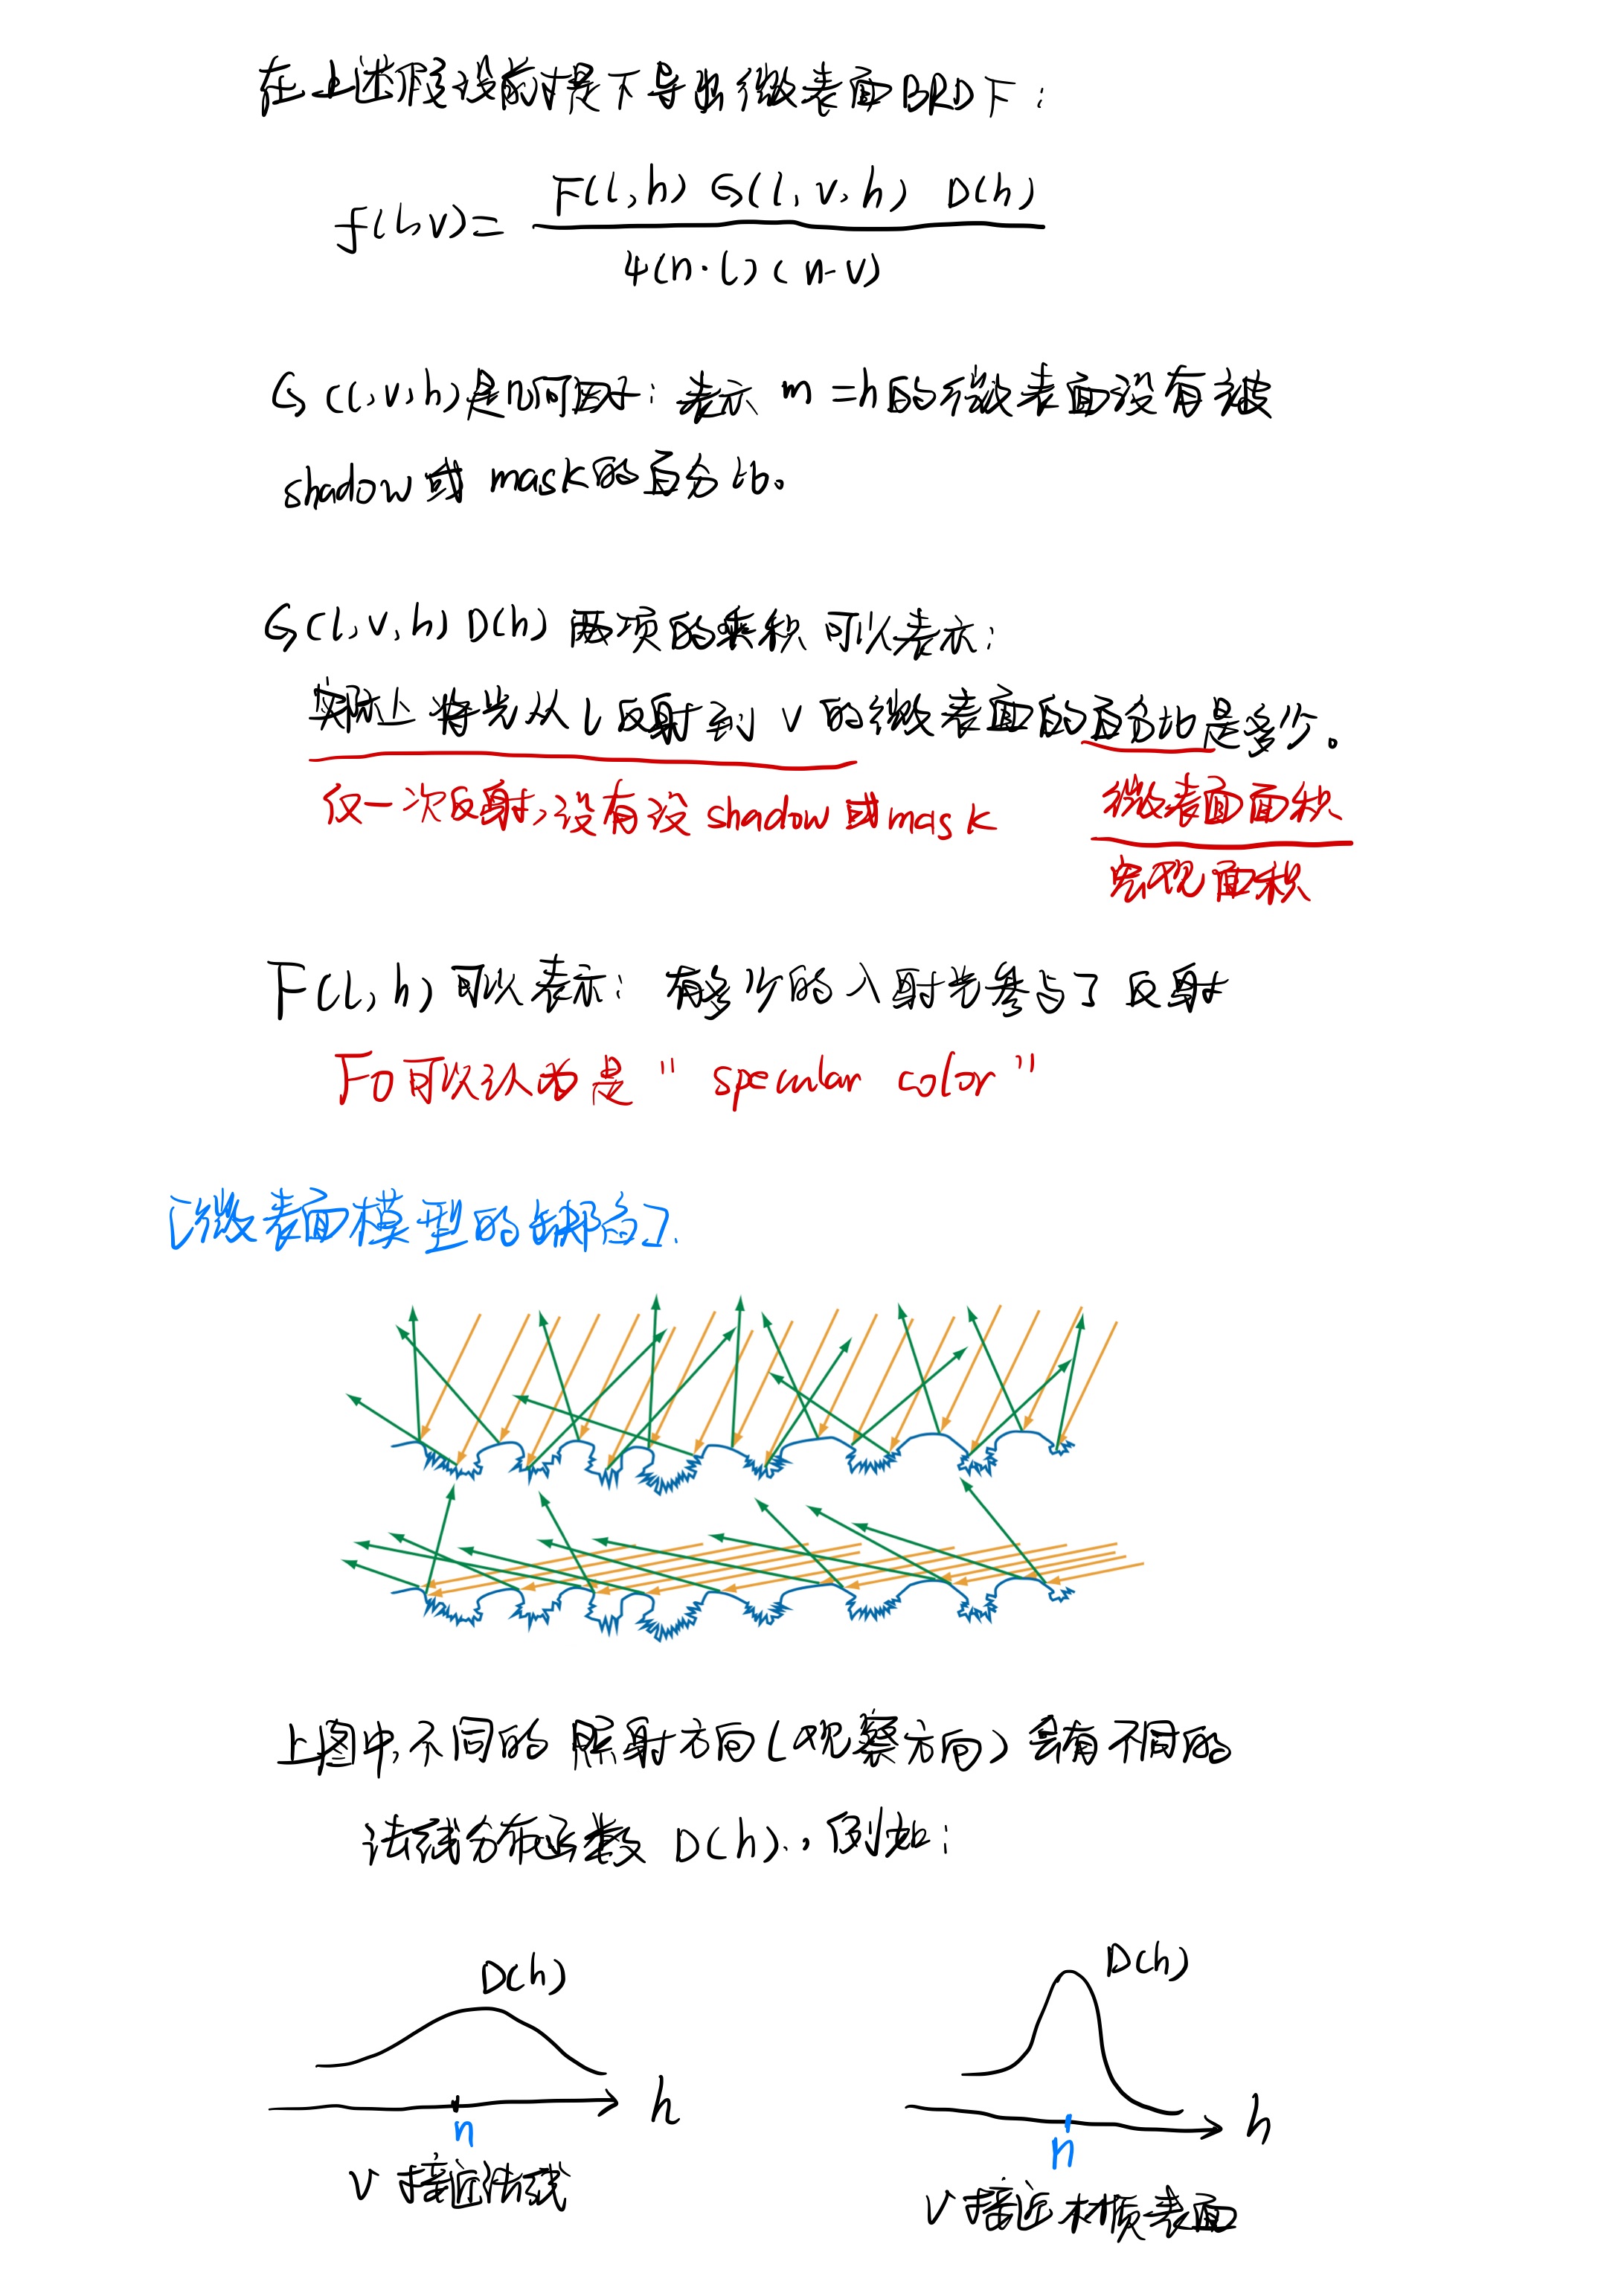 在上述假设前提下导出微表面BRDF:
f(l,v)= F(l,h) G(l,v,h) D(h)
4(n·l)(n·v)
G(l,v,h)是几何因子:表示 m=h的微表面没有被
shadow或 mask的百分比。
G(l,v,h) D(h) 两项的乘积 可以表示:
实际上将光从 l 反射到 v 的微表面的百分比是多少。
仅一次反射,没有没 shadow或mask
微表面面积
宏观面积
F(l,h) 可以表示: 有多少的入射光参与了反射
F0可以认为是 " specular color "
[微表面模型的缺陷].
上图中,不同的 照射方向(观察方向) 会有不同的
法线分布函数 D(h).,例如:
D(h)
h
n
v 接近法线
D(h)
h
n
v 接近材质表面